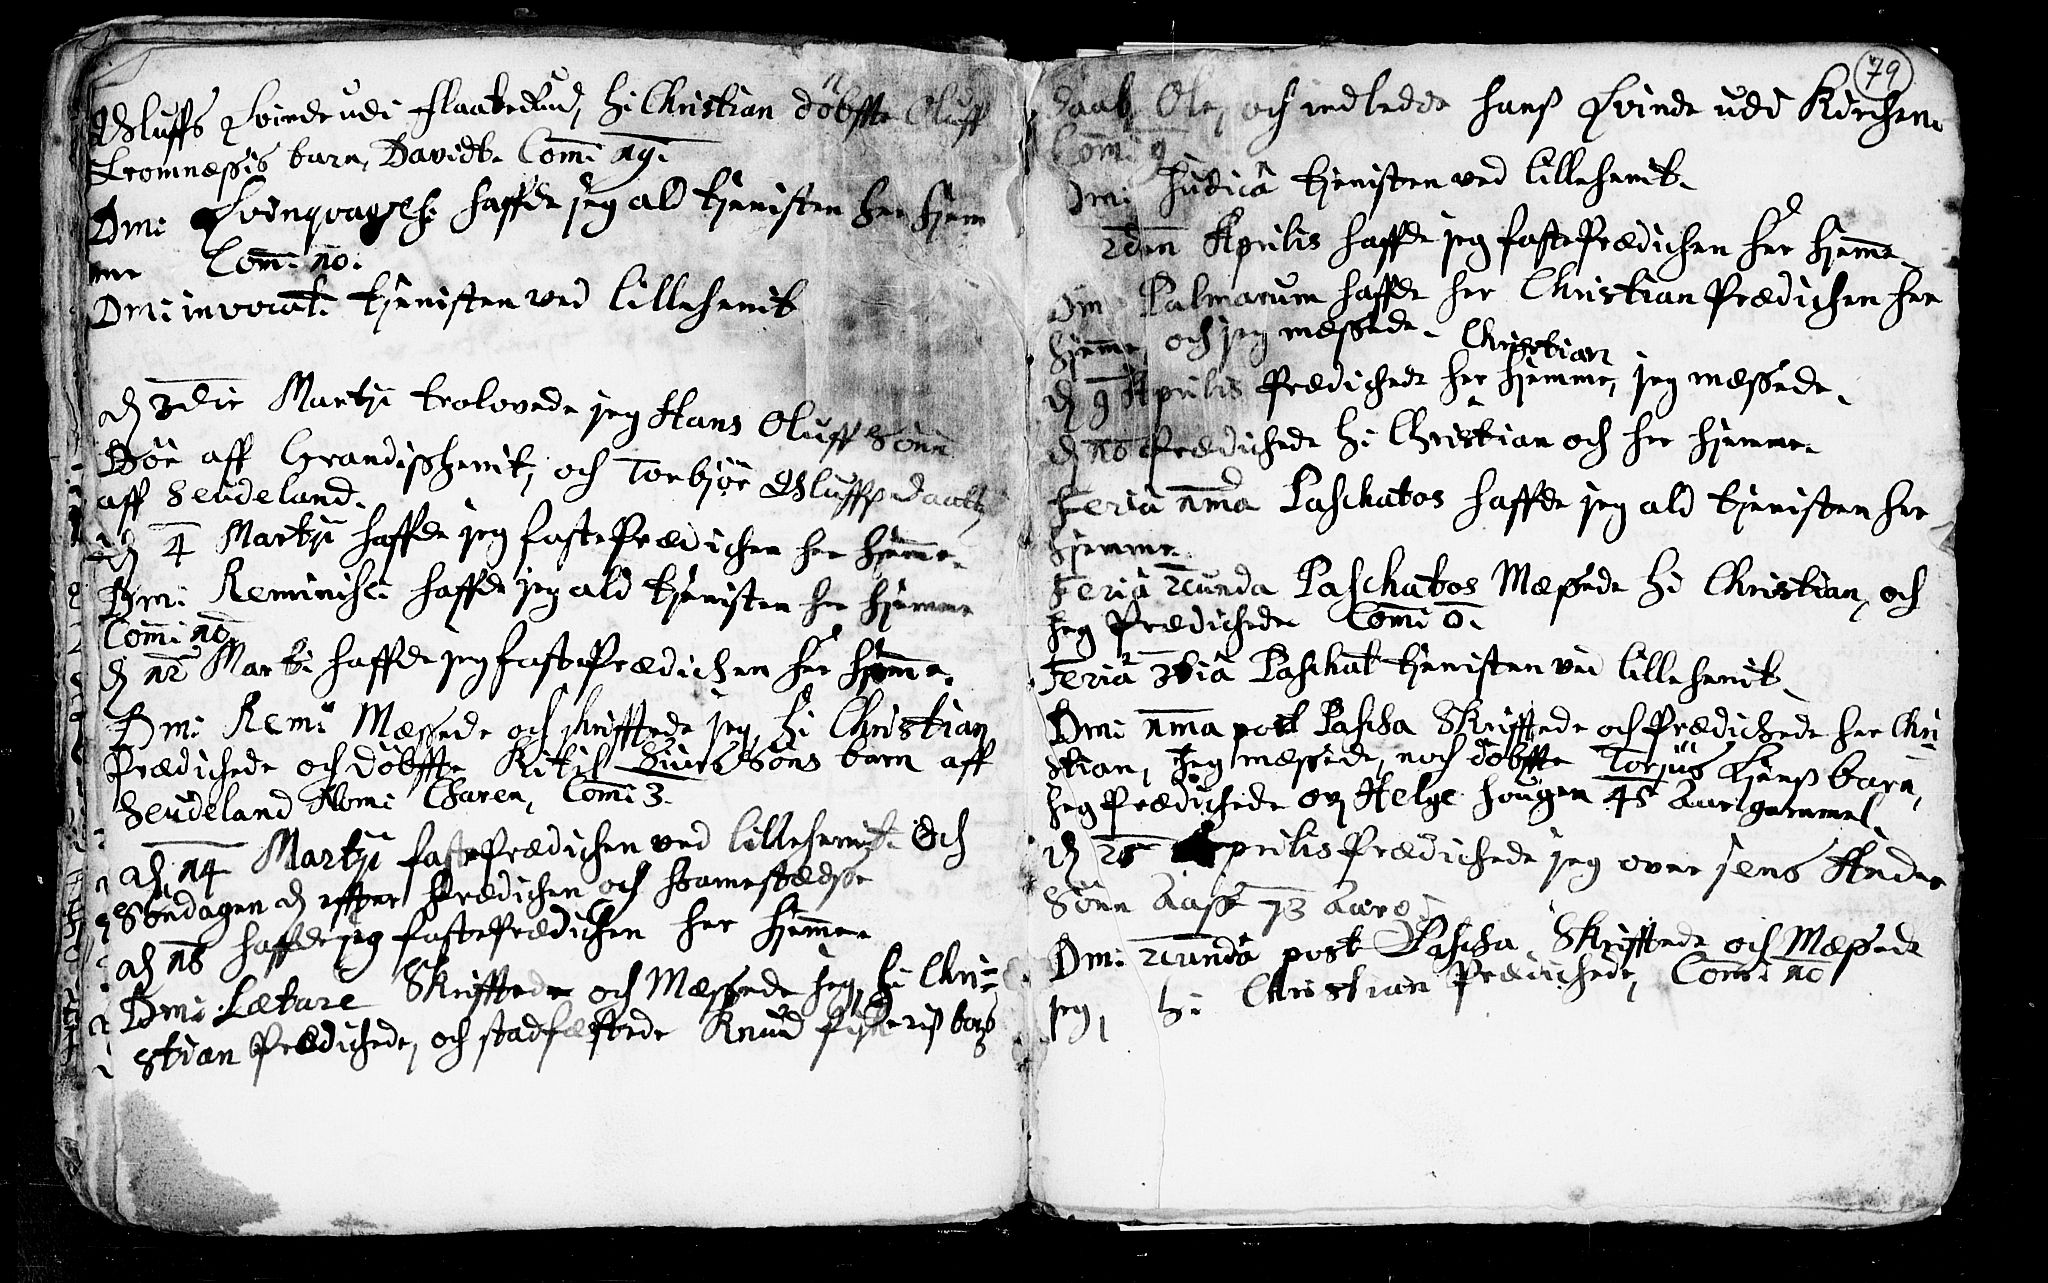 Oluffs Qvinde udi Flaatedud, Hr Christian döbffte Oluff
Tromnæssis barn, Davidt. Com: 19.
Dmi: Qvinqvages: haffde jeg ald tjenisten her hjem
me Com: 10.
Dmi: invocat: tjenisten ved Lilleherrit
D 3die Martji trolovede jeg Hans Oluff Sönn
Böe aff Grandisherrit, och Torbjör Oluffs daatt
aff Seudeland.
D 4 Martji haffde jeg faste Prædichen her hjemme.
Dmi: Reminisc: haffde jeg ald tjenisten her hjemme
Com: 10.
D 12 Marti haffde jeg faste Prædichen her hjemme.
Dmi: Remi: Mæssede och skrifftede jeg, Hr Christian
Prædichede och döbffte Kitil Siurs Söns barn aff
Seudeland Nomi: Charen, Com: 3.
D 14 Martji faste Prædichen ved Lilleherrit. Och
Söndagen d effter Prædichen och
D 18 haffde jeg faste Prædichen her hjemme
Dmi: Lætare Skrifftede och Mæssede jeg, Hr Chri=
stian Prædichede, och stadfæstede Knud
79
Ole, och indledde hans Qvinde udi Kirchen.
Com: 9
Dmi: Judicâ tjenisten ved Lilleherrit.
2den Aprilis haffde jeg faste Prædichen her hjemme.
Dm Palmarum haffde her Christian Prædichen her
hjemme, och jeg mæssede.
Christian
D 9 Aprilis Prædichede her hjemme, jeg mæssede.
D 10 Prædichede Hr Christian och her hjemme.
Feriâ 1ma Paschatos haffde jeg ald tjenisten her
hjemme.
Feriâ 2cunda Paschatos Mæssede Hr Christian, och
Jeg Prædichede Com: 0.
Feriâ 3tiâ Paschat tjenisten ved Lilleherrit.
Dmi: 1ma post Pascha Skrifftede och Prædichede her Chri=
stian, Jeg mæssede, noch döbffte Torjus barn,
Jeg Prædichede ov Helge Hougen 48 Aar gammel
D 25 Aprilis Prædichede jeg over Jens Ander
Sönn Aass 73 Aar
Dmi: 2cundâ post Pascha Skrifftede och Mæssede
jeg, Hr Christian Prædichede, Com: 10